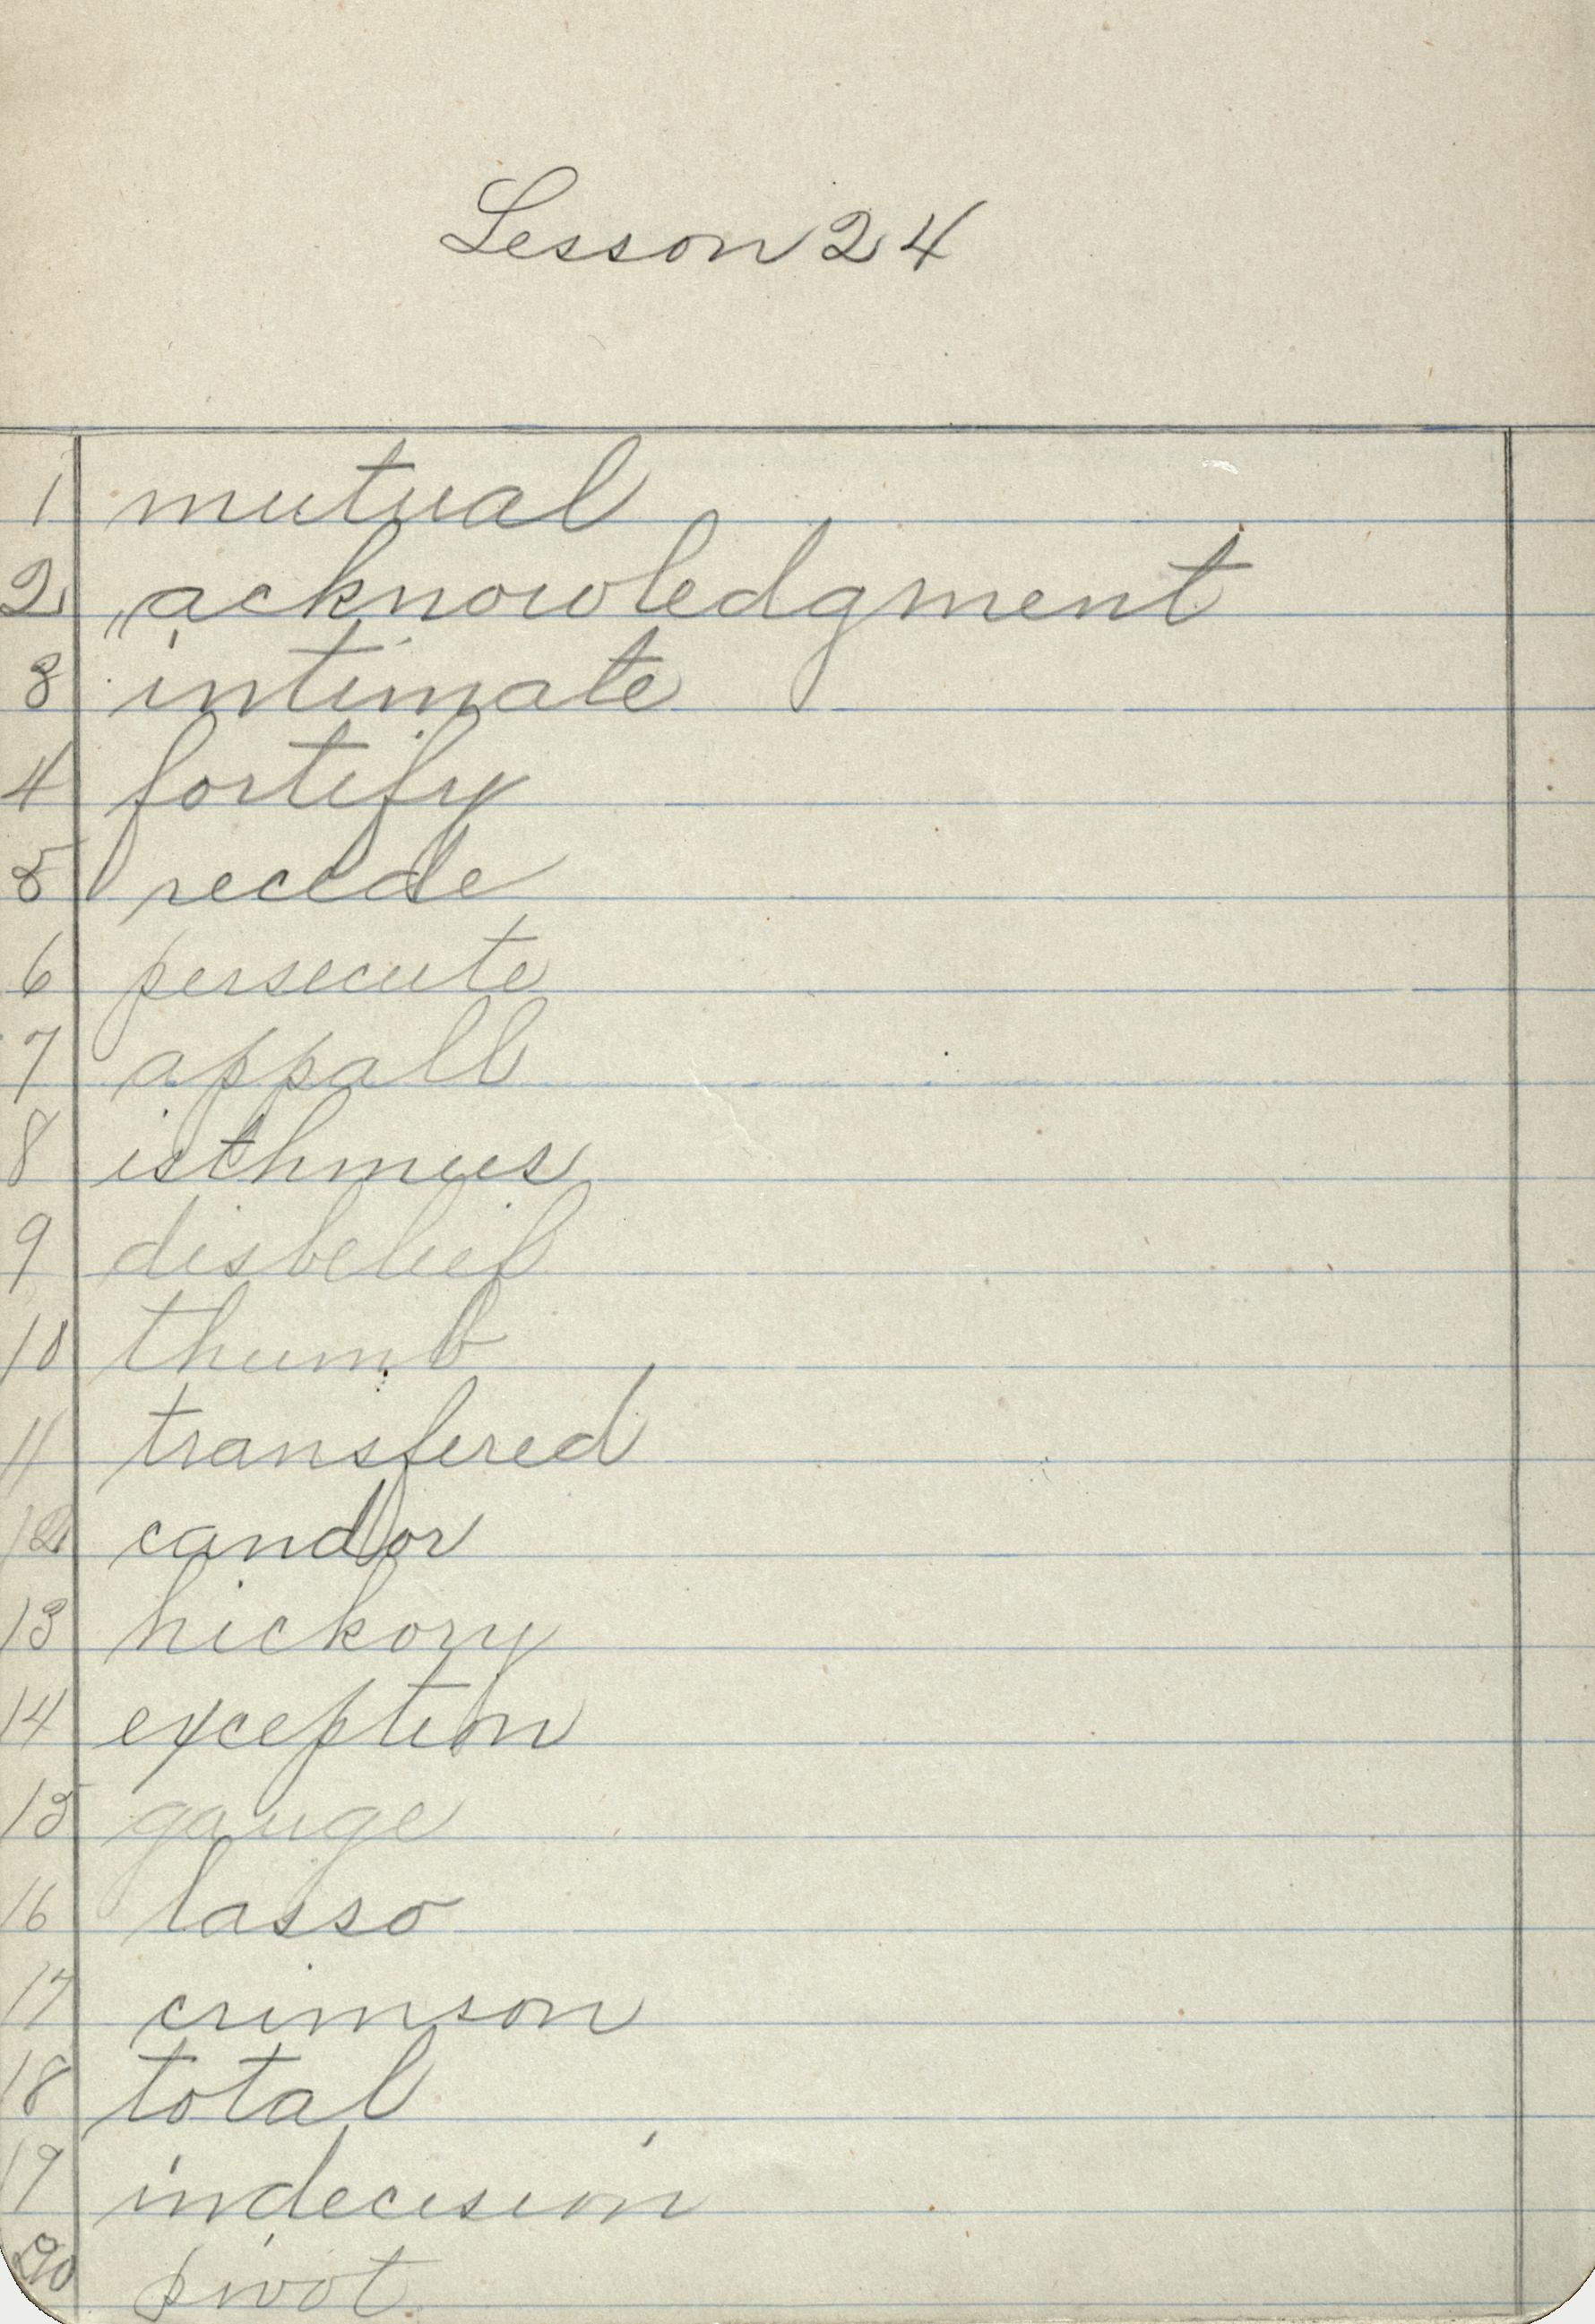 Lesson 24
1 mutual
2 acknowledgment
3 intimate
4 fortify
5 recede
6 persecute
7 appall
8 isthmus
9 disbelief
10 thumb
11 transfered
12 candor
13 hickory
14 exception
15 gauge
16 lasso
17 crimson
18 total
19 indecision
20 pivot